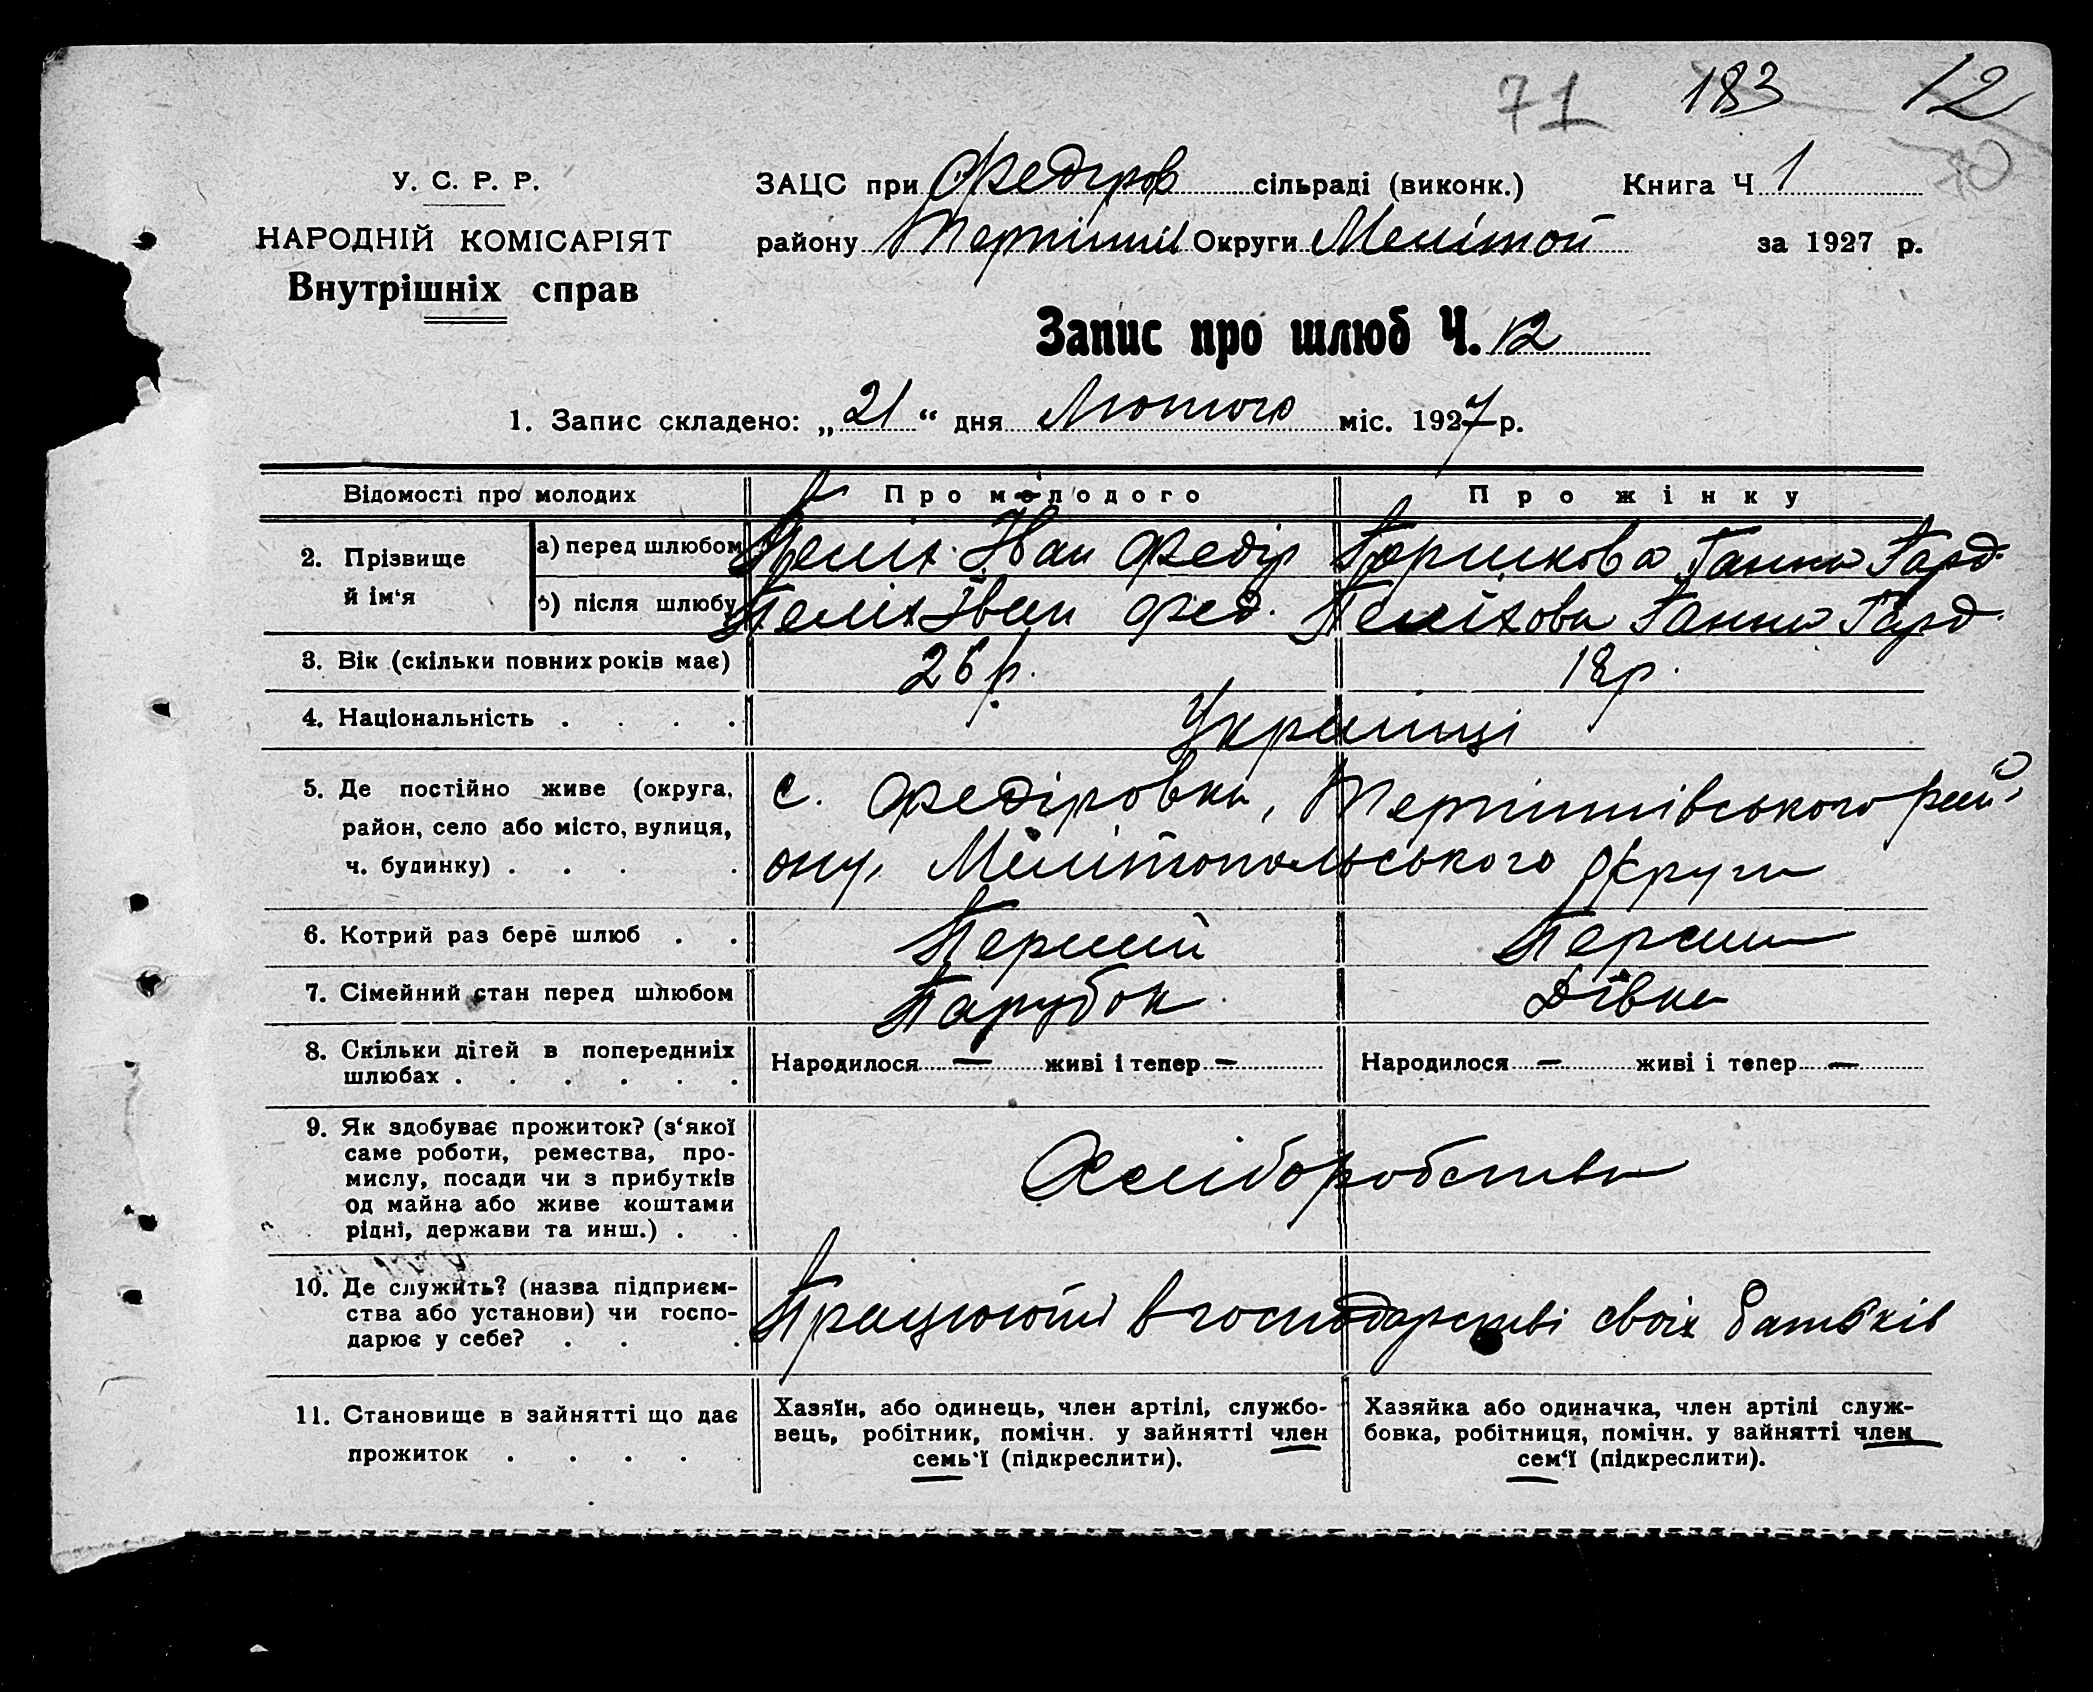 71 183 12
70
У. С. Р. Р.
НАРОДНІЙ КОМІСАРІЯТ
Внутрішніх справ
ЗАЦС при Федіров сільраді (виконк.) Книга Ч 1
району Терпіннів Округи Меліто́п за 1927 р.
Запис про шлюб Ч. 12
1. Запис складено: „21“ дня Лютого міс. 1927 р.
Відомості про молодих Про молодого Про жінку
2. Прізвище й ім‘я
а) перед шлюбом Пеліх Іван Федір Ганна Гард.
б) після шлюбу Пеліх Іван Фед. Пеліхова Ганна Гард.
3. Вік (скільки повних років має) 26 р. 18 р.
4. Національність . . . . Украинці
5. Де постійно живе (округа, район, село або місто, вулиця, ч. будинку) . . . .
с. Федіровка, Терпіннівського рай-
ону, Мелітопольського округа
6. Котрий раз бере шлюб . . Перший Перша
7. Сімейний стан перед шлюбом Парубок Дівка
8. Скільки дітей в попередниіх шлюбах . . . . . . Народилося — живі і тепер — Народилося — живі і тепер —
9. Як здобуває прожиток? (з‘якої
саме роботи, ремества, про-
мислу, посади чи з прибутків
од майна або живе коштами
рідні, держави та инш.) . .
Хліборобство
10. Де служить? (назва підприєм-
ства або установи) чи госпо-
дарює у себе? . . .
Працюють в господарстві своіх батьків
11. Становище в зайнятті що дає
прожиток . . . .
Хазяїн, або одинець, член артілі, службо-
вець, робітник, помічн. у зайнятті член
семь‘ї (підкреслити).
Хазяйка або одиначка, член артілі служ-
бовка, робітниця, помічн. у зайнятті член
сем‘ї (підкреслити).